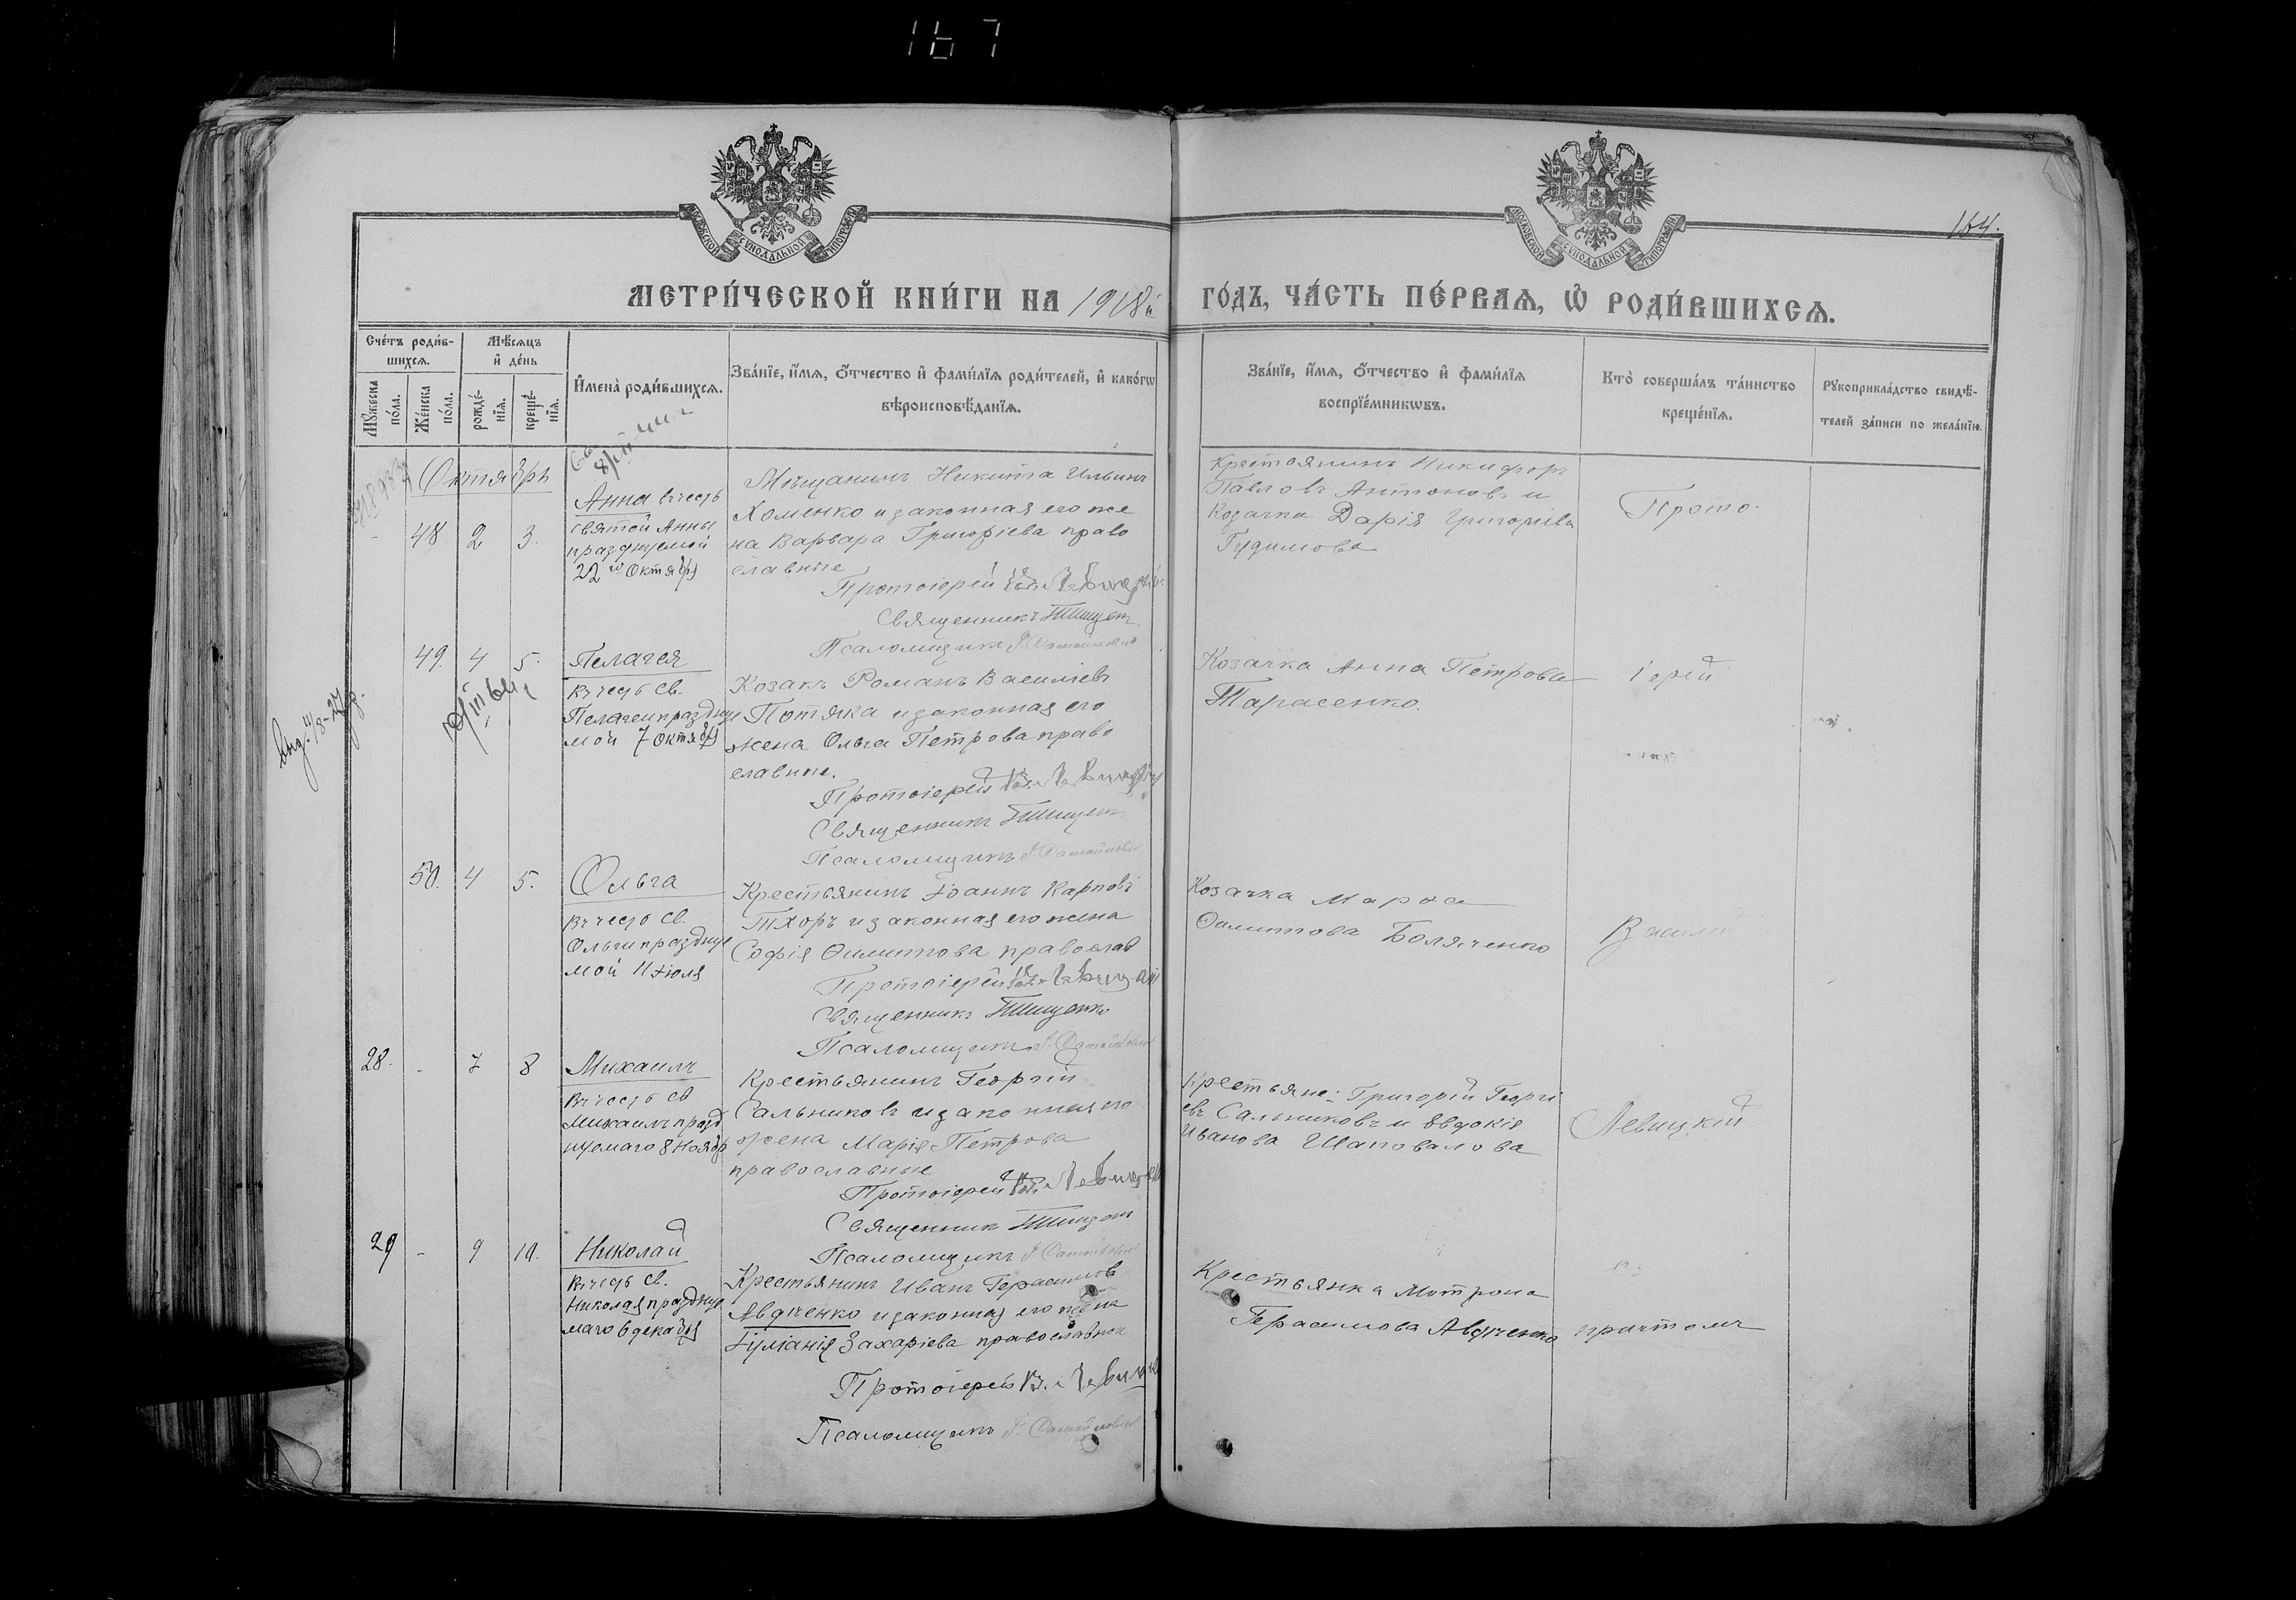 167
МОСКОВСКОЙ СѴНОДАЛЬНОЙ ТИПОГРАФІИ
МОСКОВСКОЙ СѴНОДАЛЬНОЙ ТИПОГРАФІИ
164.
МЕТРИ́ЧЕСКОЙ КНИ́ГИ НА 1918й ГО́ДЪ, ЧА́СТЬ ПЕ́РВАЯ, Ѡ РОДИ́ВШИХСЯ.
Сче́тъ роди́в-
шихся.
Мѣ́сяцъ
и де́нь
Му́жеска по́ла.
Же́нска по́ла.
рожде́-
нія.
креще́-
нія.
Имена̀ роди́вшихся.
Зва́нїе, и́мя, о́тчество и фами́лїя роди́телей, и како́гѡ
вѣроисповѣ́данїя.
Зва́нїе, и́мя, о́тчество и фами́лїя
воспрїе́мникѡвъ.
Кто̀ соверша́лъ та́инство
креще́нїя.
Рукоприкла́дство свидѣ́-
телей за́писи по жела́нїю.
Октябрь
48 2 3.
Анна въ честь
святой Анны
празднуемой
22го Октября
Мѣщанинъ Никита Ильинъ
Хоменко и законная его же
на Варвара Григоріева право
славные
Протоіерей Вас. Левицкій
Священникъ Тищенко
Псаломщикъ
Крестьянинъ Никифоръ
Павловъ Антоновъ и
Козачка Дарія Григоріева
Гудимова
Прото-
49. 4 5.
Пелагея
Въ честь св.
Пелагеи праздну
мой 7 Октября
Козакъ Романъ Васильевъ
Потяка и законная его
жена Ольга Петрова право
славные.
Протоіерей Вас. Левицкій
Священникъ Тищенко
Псаломщикъ
Козачка Анна Петрова
Тарасенко.
іерей
50. 4 5.
Ольга
Въ честь св.
Ольги празднуе
мой 11 Іюля
Крестьянинъ Іоаннъ Карповъ
Тхоръ и законная его жена
Софія Филиппова православ
Протоіерей Вас. Левицкій
Священникъ Тищенко
Псаломщикъ
Козачка Марѳа
Филиппова Боляченко
Василій
28. - 7 8
Михаилъ
Въ честь св
Михаилъ празд
нуемаго 8 Ноября
Крестьянинъ Георгій
Сальниковъ и законная его
жена Марія Петрова
православные
Протоіерей Вас. Левицкій
Священник Тищенко
Псаломщикъ
Крестьяне: Григорій Георгі
евъ Сальниковъ и Евдокія
Иванова Шаповалова
Левицкій
29 - 9 10.
Николай
Въ честь св.
Николая празднуе
маго 6 декабря
Крестьянинъ Иванъ Герасимовъ
Авдченко и законная его жена
Іуліанія Захаріева православные
Протоіерей Вас. Левицкій
Псаломщикъ
Крестьянка Мотрона
Герасимова Авдченко
причтомъ